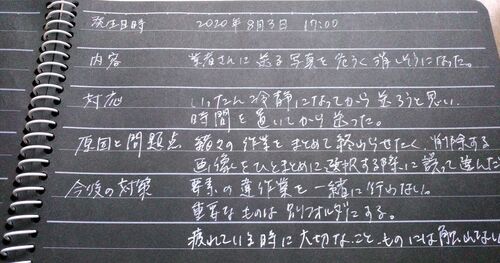 発生日時 2020年8月3日 17:00
内容 業者さんに送る写真を危うく消しそうになった。
対応 いったん冷静になってから送ろうと思い、
時間を置いてから送った。
原因と問題点 諸々の作業をまとめて終わらせたく、削除する
画像をひとまとめに選択する際に誤って選んだ
今後の対策 要素の違う作業を一緒に行わない。
重要なものは別フォルダにする。
疲れている時に大切なこと、ものには触れない